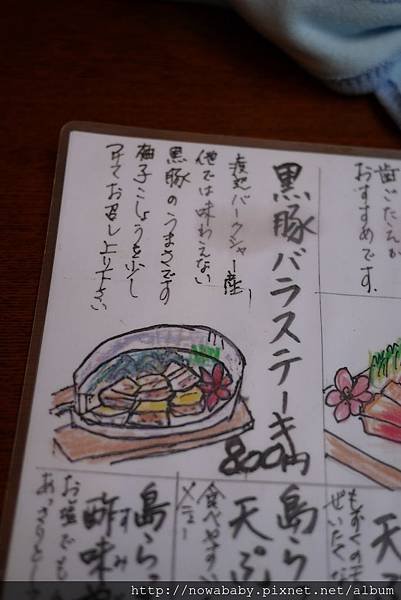 歯ごたえが
おすすめです。
黒豚バラステーキ
800円
産地バークシャー産
他では味わえない
黒豚のうまさです
柚子こしょうを少し
つけてお召し上り下さい
もずくの天
ぜいたくな
天
島らっ
天ぷ
食べやすい
メニュー
島らっ
酢味
お塩でも
あっさりと
http://nowababy.pixnet.net/album